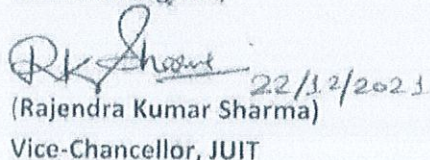 RK Sharma 22/12/2021
(Rajendra Kumar Sharma)
Vice-Chancellor, JUIT